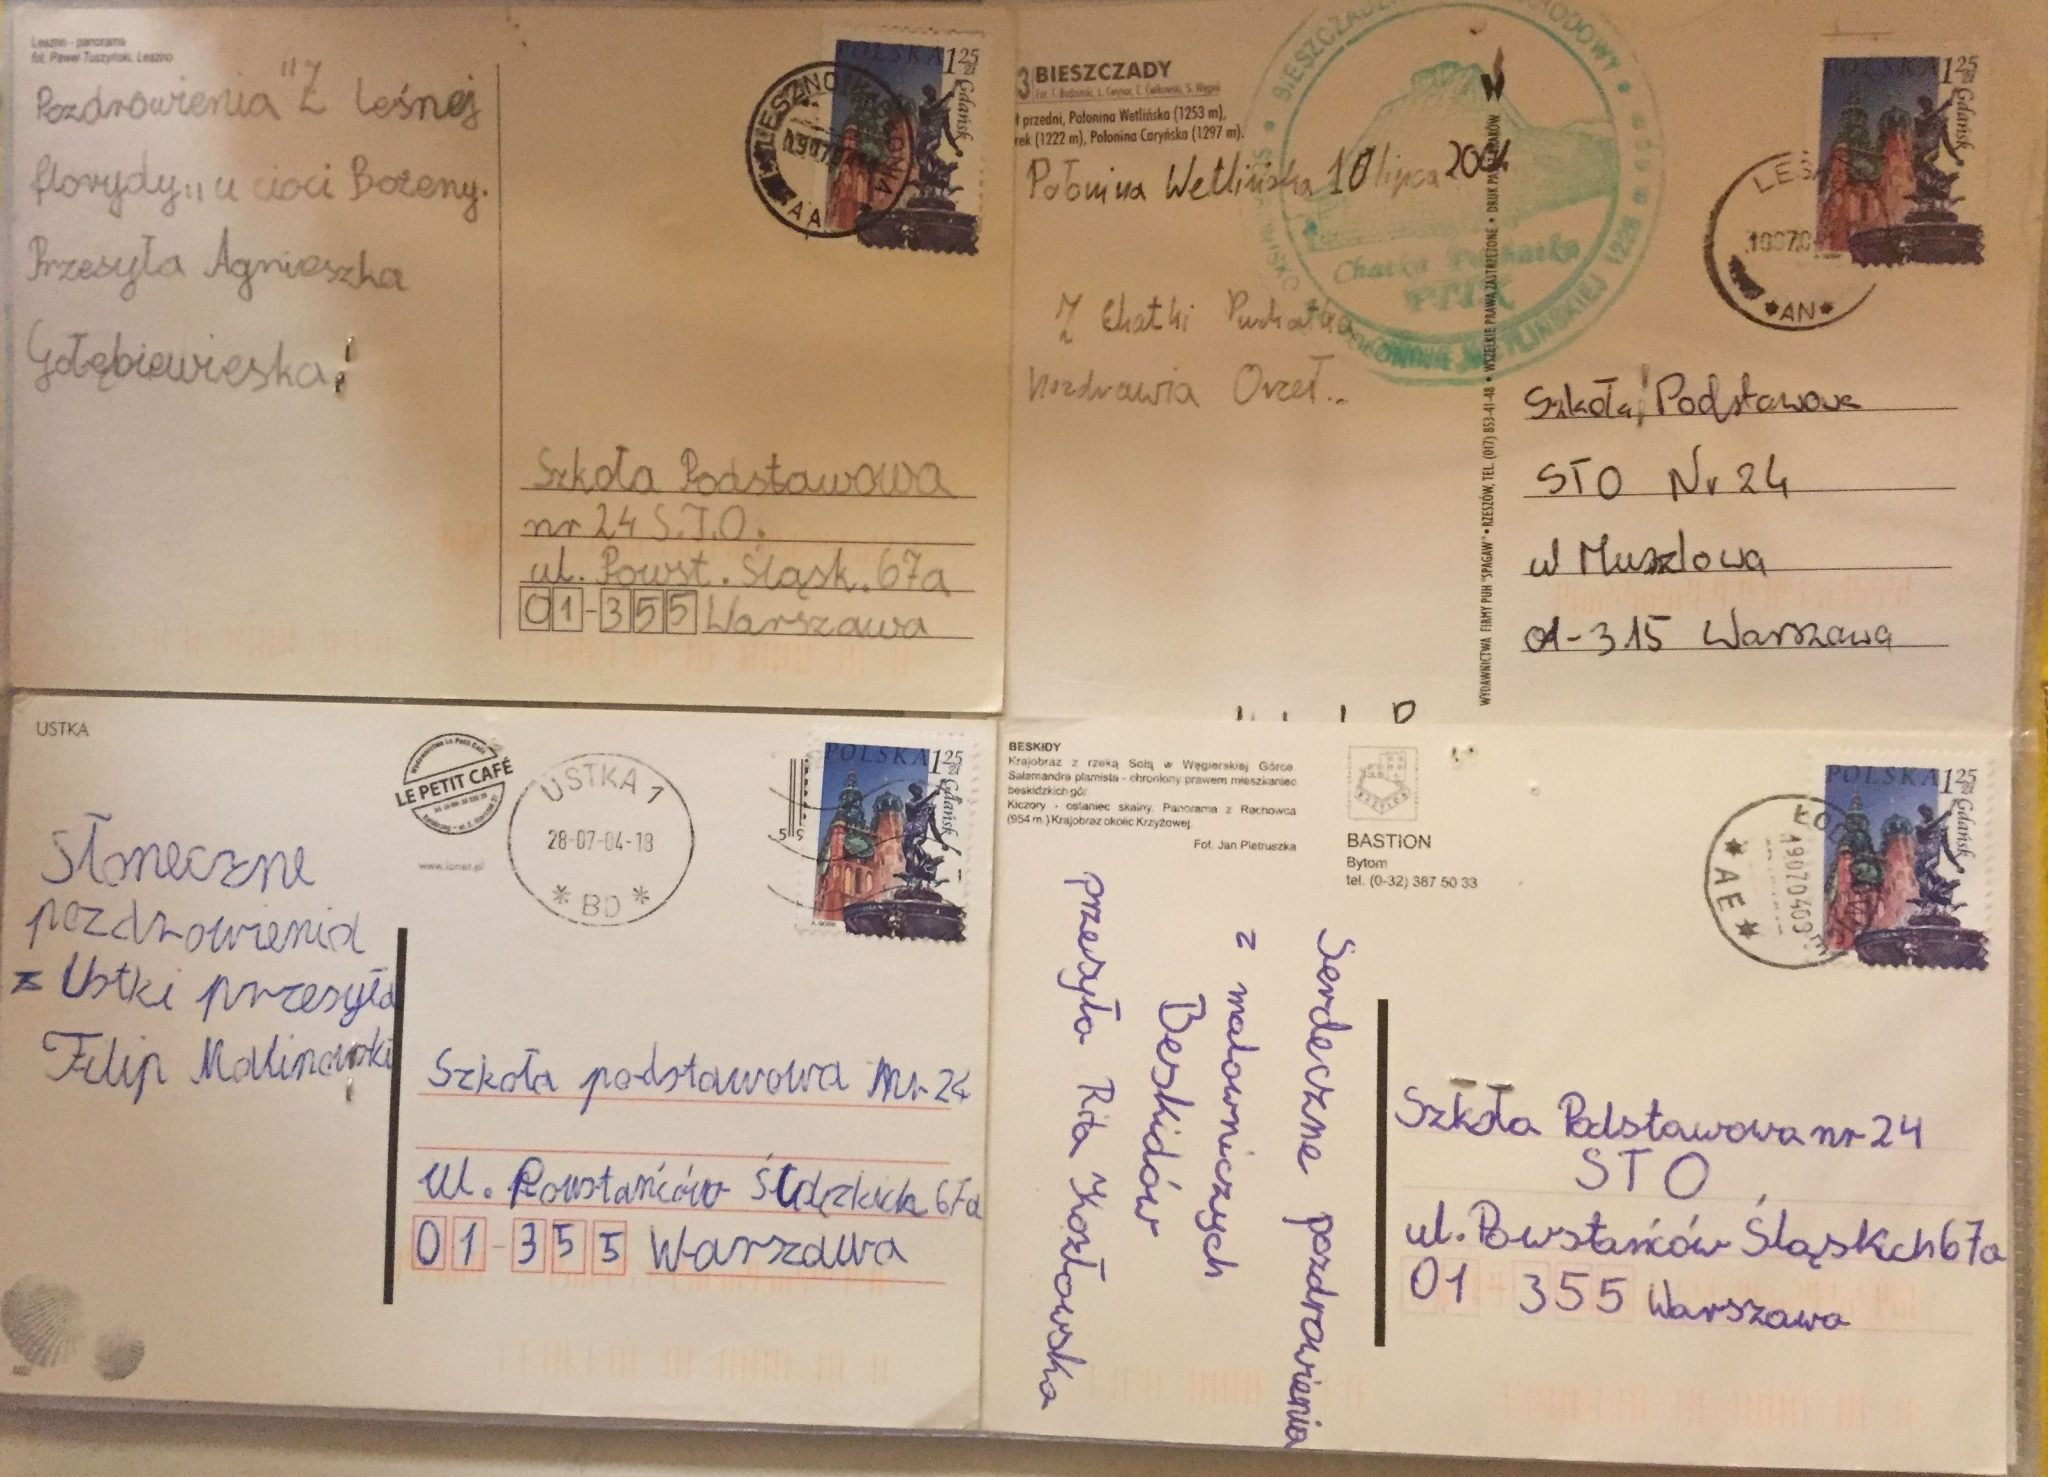 Leszno - panorama
fot. Paweł Tuszyński, Leszno
Pozdrowienia "Z Leśnej
florydy„ u cioci Bożeny.
Przesyła Agnieszka
Gołębiewieska
POLSKA 1 25 zł
Gdańsk
LESZNO
AA
Szkoła Podstawowa
nr 24 S.T.O.
ul. Powst. Śląsk. 67a
01-355 Warszawa
3 BIESZCZADY
przedni, Połonina Wetlińska (1253 m),
rek (1222 m), Połonina Caryńska (1297 m).
Połonina Wetlińska 10 lipca 2004
Chatka Puchatka
PTTK
WETLIŃSKIEJ 1228
Z Chatki Puchatka
Pozdrawia Orzeł..
WYDAWNICTWA FIRMY PUH "SPAGAW" • RZESZÓW, TEL. (017) 853-41-48 • WSZELKIE PRAWA ZASTRZEŻONE •
POLSKA 1 25 zł
Gdańsk
*AN*
Szkoła Podstawowa
STO Nr 24
ul Muszlowa
01-315 Warszawa
USTKA
LE PETIT CAFÉ
USTKA 1
28-07-04-18
* BD *
POLSKA 1 25 zł
Gdańsk
Słoneczne
pozdrowienia
z Ustki przesyła
Filip Malinowski
Szkoła podstawowa nr 24
ul. Powstańców Śląskich 67a
01-355 Warszawa
BESKIDY
Krajobraz z rzeką Sołą w Węgierskiej Górce.
Salamandra plamista - chroniony prawem mieszkaniec
beskidzkich gór.
Kiczory - ostaniec skalny. Panorama z Rachowca
(954 m.) Krajobraz okolic Krzyżowej.
Fot. Jan Pietruszka
BASTION
Bytom
tel. (0-32) 387 50 33
POLSKA 1 25 zł
Gdańsk
* AE *
Serdeczne pozdrowienia
z malowniczych
Beskidów
przesyła Rita Kozłowska
Szkoła Podstawowa nr 24
STO
ul. Powstańców Śląskch 67a
01 355 Warszawa